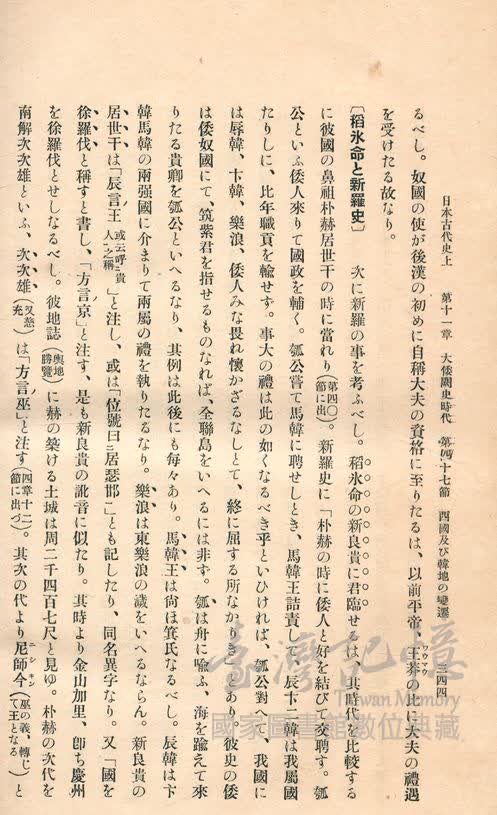 日本古代史上　第十一章　大倭闢史時代　第四十七節　西國及び韓地の變遷　三四四
るべし。奴國の使が後漢の初めに自稱大夫の資格に至りたるは、以前平帝、王莽の比に大夫の禮遇
を受けたる故なり。
〔稻氷命と新羅史〕　次に新羅の事を考ふべし。稻氷命の新良貴に君臨せるは、其時代を比較する
に彼國の鼻祖朴赫居世干の時に當れり（第四〇節に出）。新羅史に「朴赫の時に倭人と好を結びて交聘す。瓠
公といふ倭人來りて國政を輔く。瓠公嘗て馬韓に聘せしとき、馬韓王詰責して、辰卞二韓は我屬國
たりしに、比年職貢を輸せず。事大の禮は此の如くなるべき乎といひければ、瓠公對へて、我國に
は辰韓、卞韓、樂浪、倭人みな畏れ懷かざるなしとて、終に屈する所なかりき」とあり。彼史の倭
は倭奴國にて、筑紫君を指せるものなれば、全聯島をいへるには非ず。瓠は舟に喩ふ、海を踰えて來
りたる貴卿を瓠公といへるなり、其例は此後にも每々あり。馬韓王は尙ほ箕氏なるべし。辰韓は卞
韓馬韓の兩强國に介まりて兩屬の禮を執りたるなり。樂浪は東樂浪の濊をいへるならん。新良貴の
居世干は「辰言王 或云呼貴人之稱」と注し、或は「位號曰居瑟邯」とも記したり、同名異字なり。又「國を
徐羅伐と稱すと書し、「方言京」と注す、是も新良貴の訛音に似たり。其時より金山加里、卽ち慶州
を徐羅伐とせしなるべし。彼地誌（輿地勝覽）に赫の築ける土城は周二千四百七尺と見ゆ。朴赫の次代を
南解次次雄といふ、次次雄（又慈充）は「方言巫」と注す（四章十二節に出づ）。其次の代より尼師今（巫の義、轉じて王となる）と
ワウマウ
ニシキン
台灣記憶
Taiwan Memory
國家圖書館數位典藏